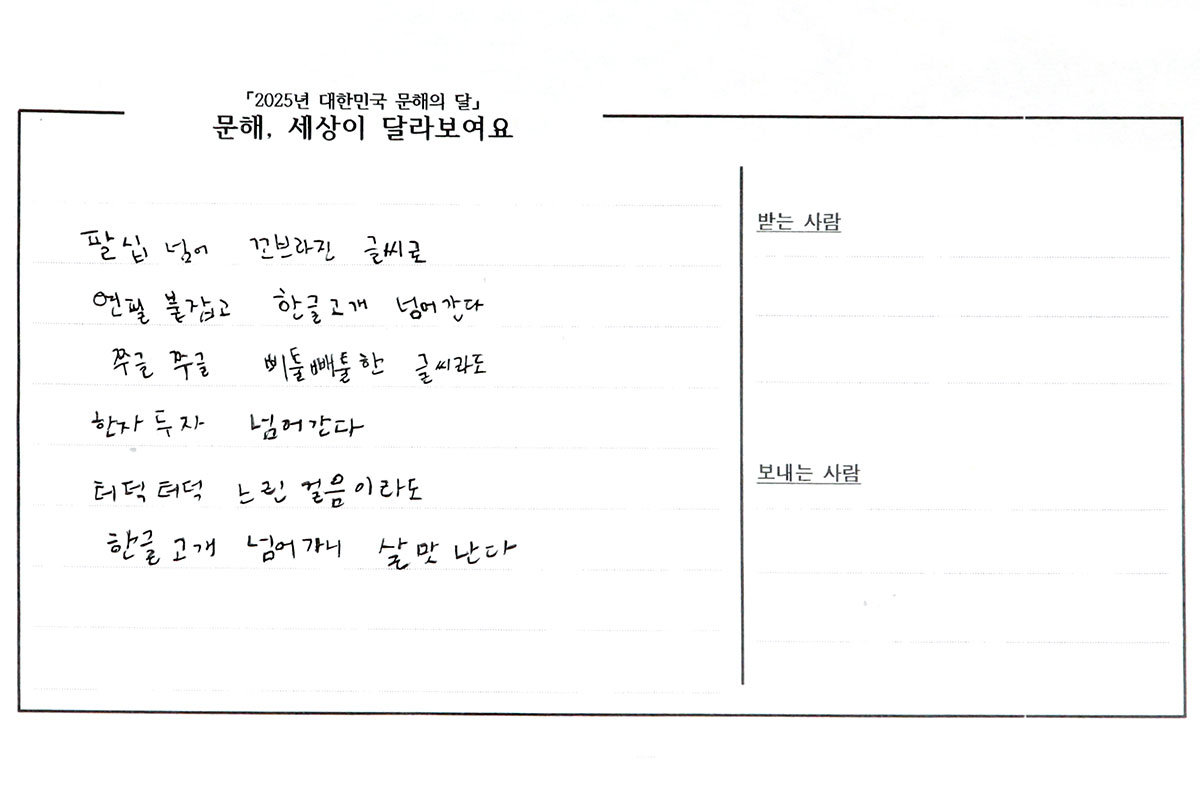 「2025년 대한민국 문해의 달」
문해, 세상이 달라보여요
팔십 넘어 꼬브라진 글씨로
연필 붙잡고 한글고개 넘어간다
쭈글 쭈글 삐툴빼툴한 글씨라도
한자 두자 넘어간다
터덕터덕 느린 걸음이라도
한글 고개 넘어가니 살맛 난다
받는 사람
보내는 사람